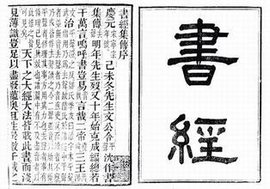 書經
書經集傳序
慶元己未冬先生文公令沈作書
集傳明年先生歿又十年始克成編總若
干萬言嗚呼書豈易言哉二帝三王
治天下之大經大法皆載此書而淺
見薄識豈足以盡發蘊奧且生於數千載